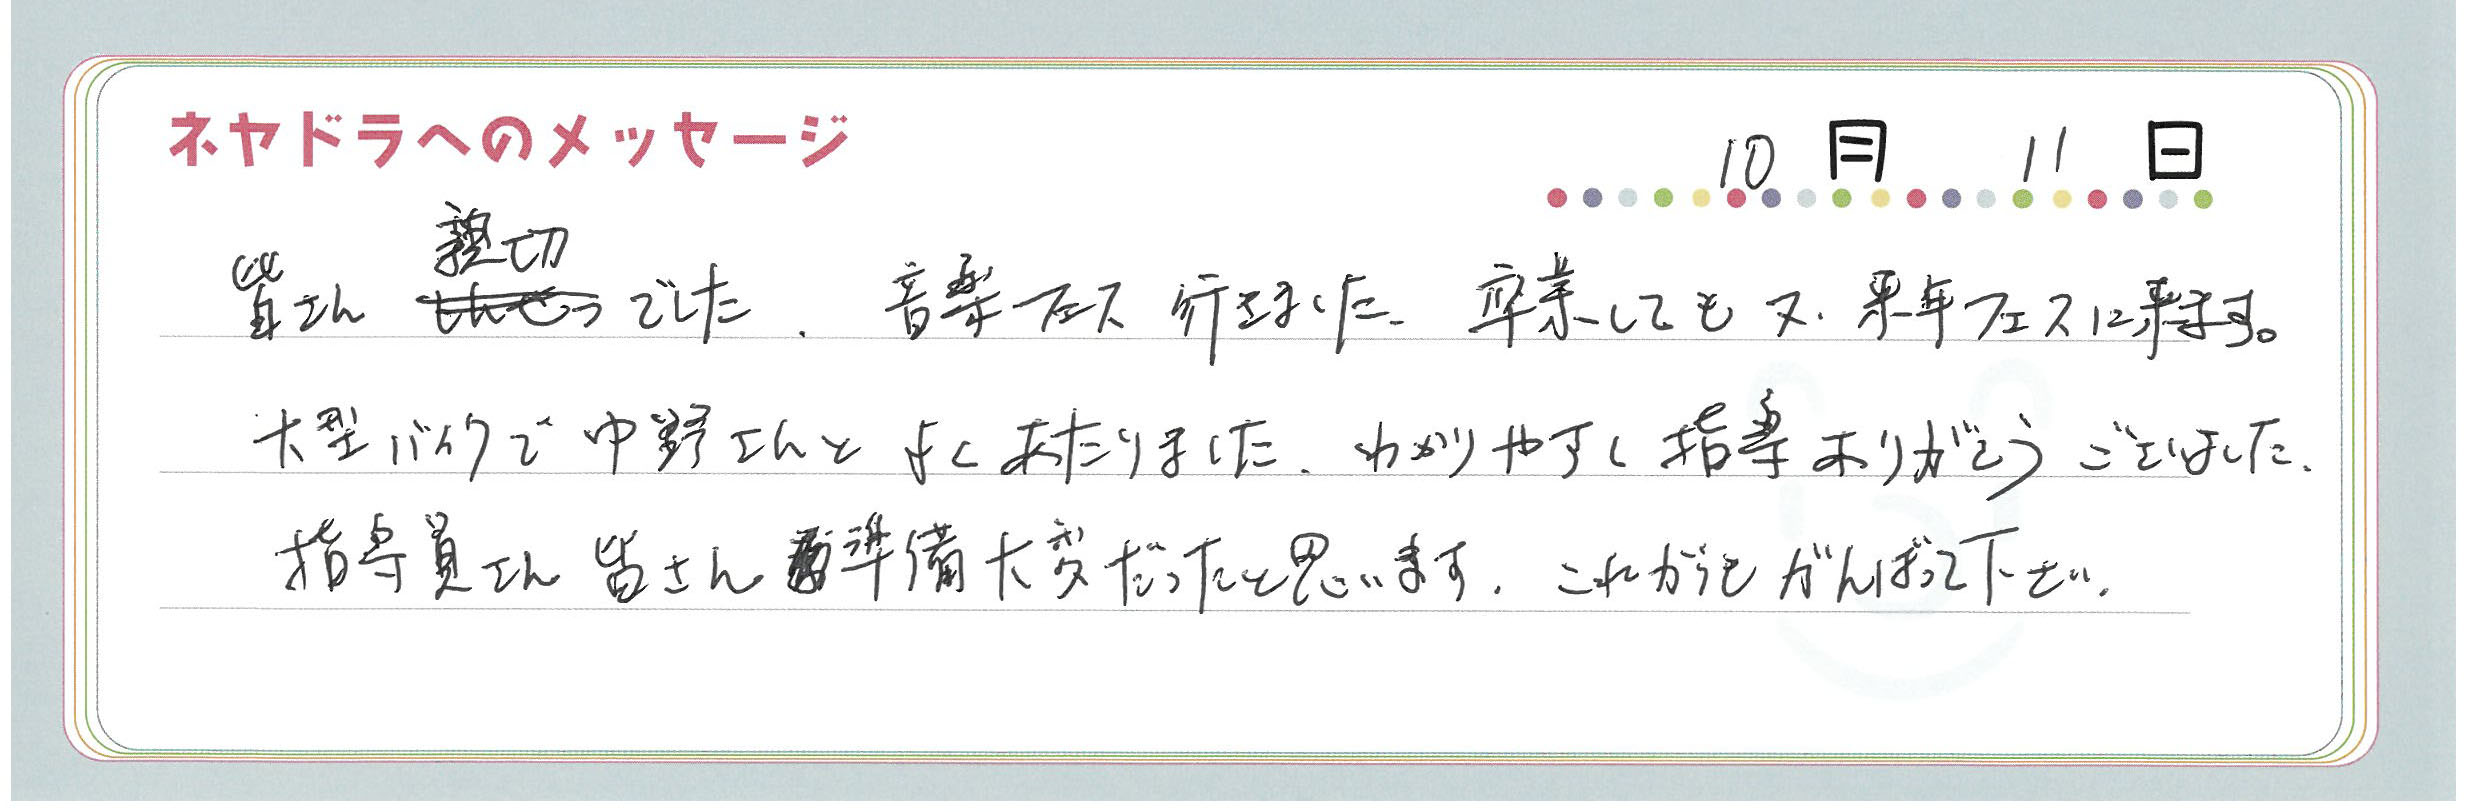 ネヤドラへのメッセージ
10月 11日
皆さん 親切でした. 音楽フェス 行きました. 卒業しても又. 来年フェスに来ます。
大型バイクで中野さんと よくあたりました. わかりやすく指導ありがとう ございました.
指導員さん 皆さん 準備大変だったと思います. これからもがんばって下さい.